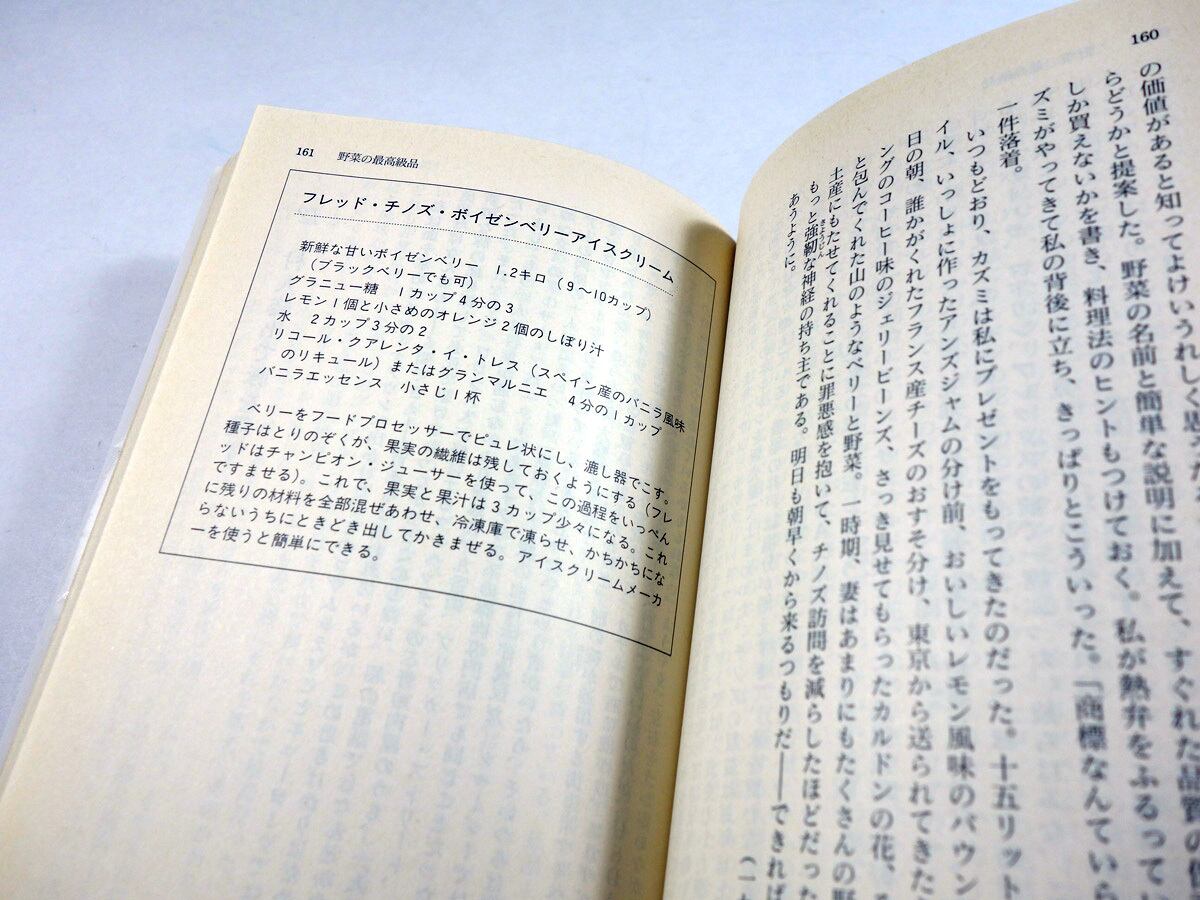 160
の価値があると知ってよけいうれしく思
らどうかと提案した。野菜の名前と簡単な説明に加えて、すぐれた品質の
しか買えないかを書き、料理法のヒントもつけておく。私が熱弁をふるってい
ズミがやってきて私の背後に立ち、きっぱりとこういった。「商標なんていら
一件落着。
いつもどおり、カズミは私にプレゼントをもってきたのだった。十五リット
イル、いっしょに作ったアンズジャムの分け前、おいしいレモン風味のパウン
日の朝、誰かがくれたフランス産チーズのおすそ分け、東京から送られてきた
ングのコーヒー味のジェリービーンズ、さっき見せてもらったカルドンの花、
と包んでくれた山のようなベリーと野菜。一時期、妻はあまりにもたくさんの野
土産にもたせてくれることに罪悪感を抱いて、チノズ訪問を減らしたほどだった
もっと強靭な神経の持ち主である。明日も朝早くから来るつもりだ――できれば
きょうじん
あうように。
(一九
161 野菜の最高級品
フレッド・チノズ・ボイゼンベリーアイスクリーム
新鮮な甘いボイゼンベリー 1.2キロ(9〜10カップ)
(ブラックベリーでも可)
グラニュー糖 1カップ4分の3
レモン1個と小さめのオレンジ2個のしぼり汁
水 2カップ3分の2
リコール・クアレンタ・イ・トレス(スペイン産のバニラ風味
のリキュール)またはグランマルニエ 4分の1カップ
バニラエッセンス 小さじ1杯
ベリーをフードプロセッサーでピュレ状にし、漉し器でこす。
種子はとりのぞくが、果実の繊維は残しておくようにする(フレ
ッドはチャンピオン・ジューサーを使って、この過程をいっぺん
ですませる)。これで、果実と果汁は3カップ少々になる。これ
に残りの材料を全部混ぜあわせ、冷凍庫で凍らせ、かちかちにな
らないうちにときどき出してかきまぜる。アイスクリームメーカ
ーを使うと簡単にできる。